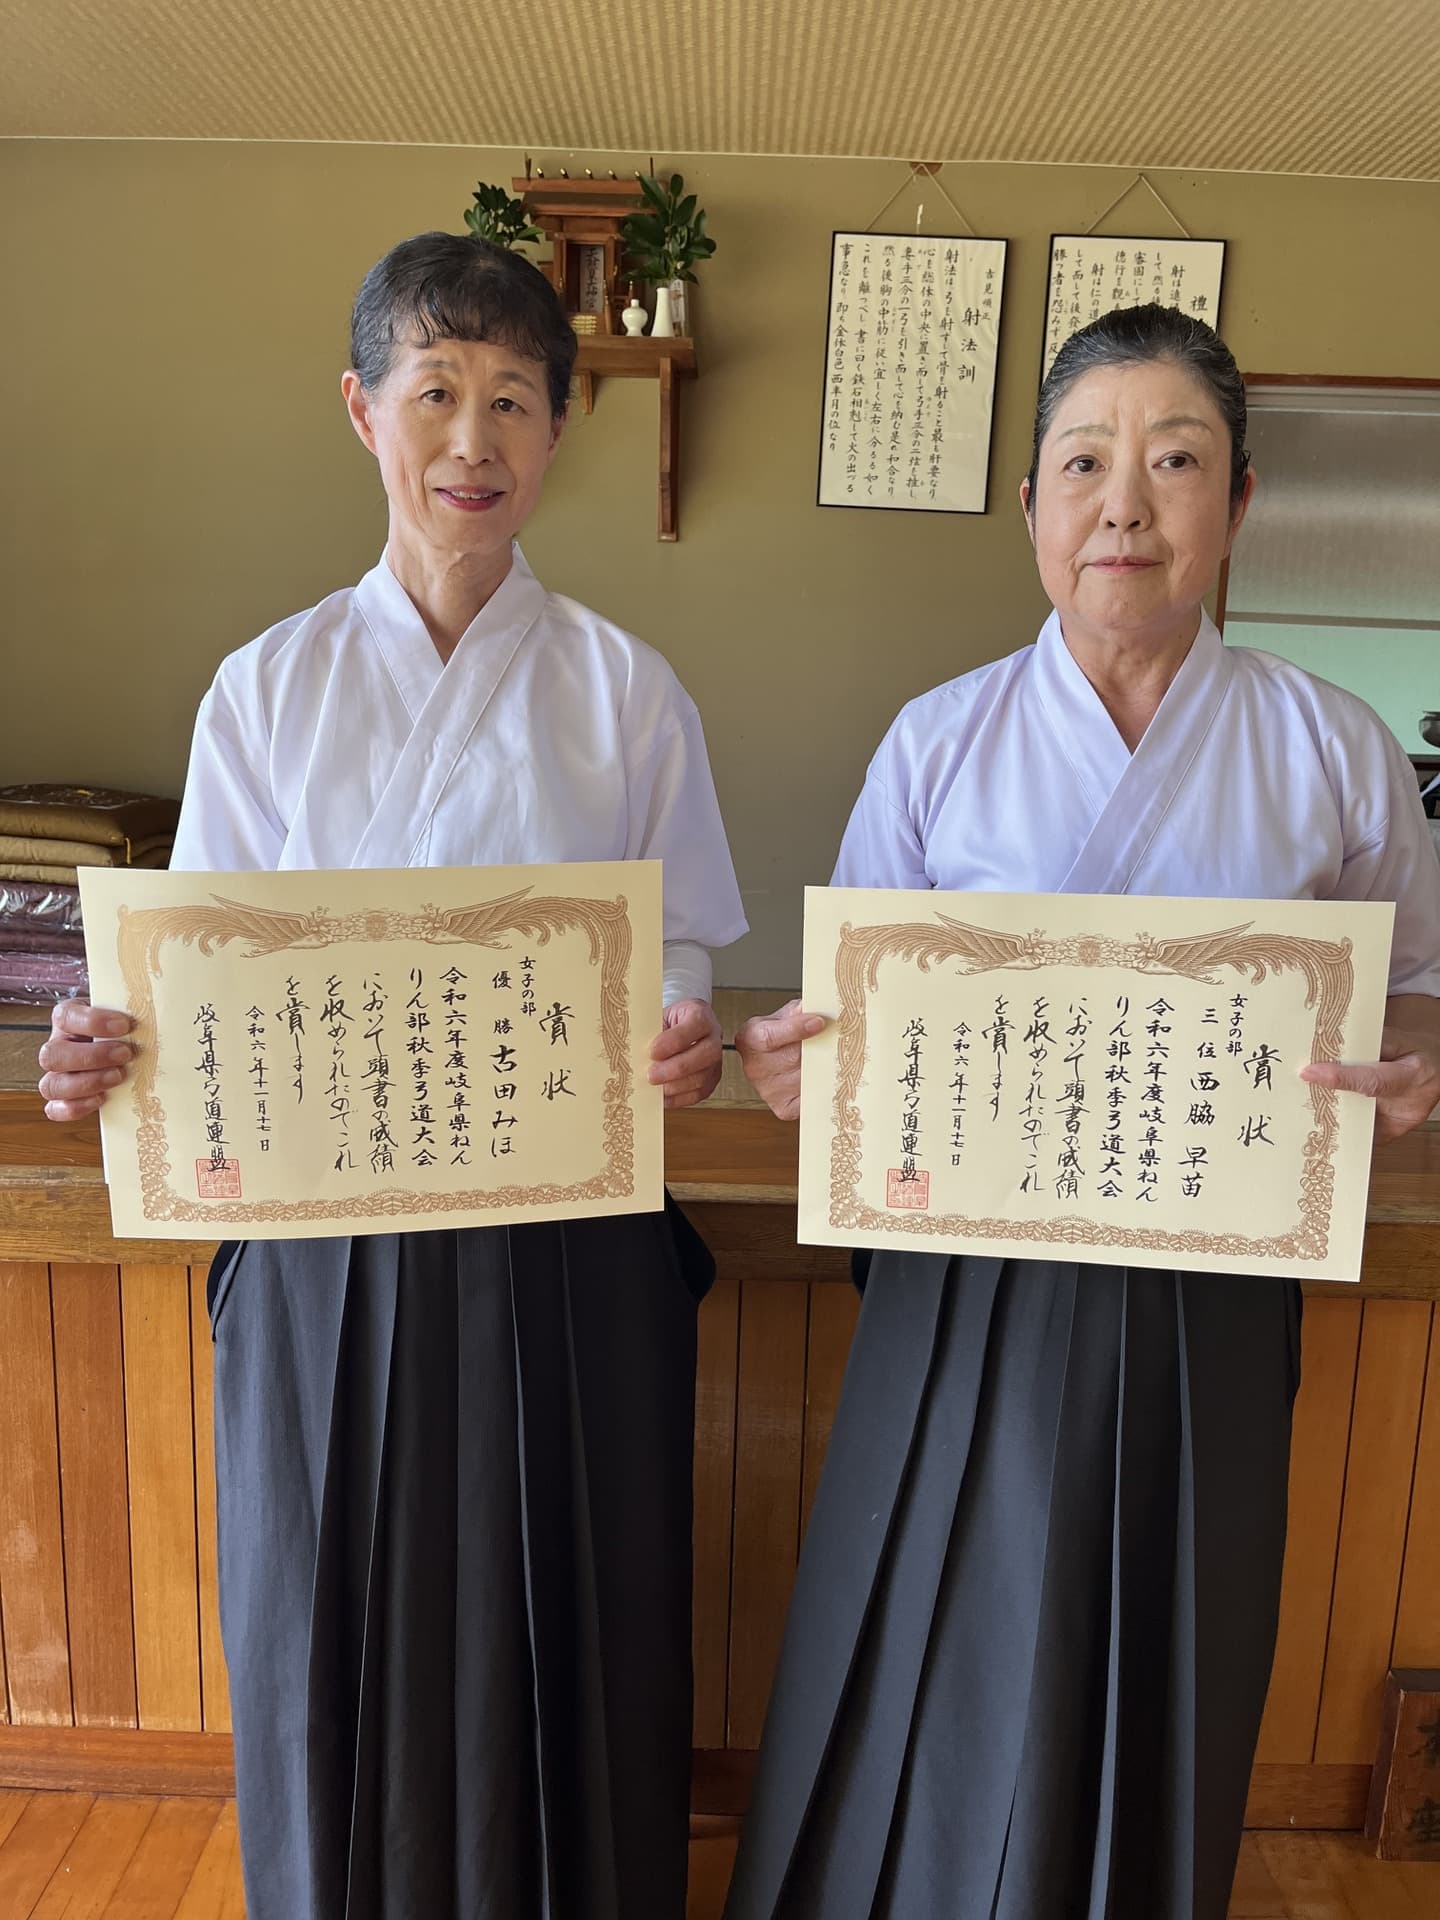 天照皇大神宮
吉見順正
射法訓
射法は、弓を射ずして骨を射ること最も肝要なり。
心を総体の中央に置き、而して弓手三分の二弦を推し、
妻手三分の一弓を引き、而して心を納む。是れ和合なり。
然る後胸の中筋に従い、宜しく左右に分るる如く
これを離つべし。書に曰く、鉄石相剋して火の出づる
事急なり。即ち金体白色、西半月の位なり。
禮
射は進
して然る後
審固にして
徳行を観
射は仁の道
して而して後発
勝つ者を怨みず。反
賞状
女子の部
優勝 古田みほ
令和六年度岐阜県ねん
りん部秋季弓道大会
において頭書の成績
を収められたのでこれ
を賞します
令和六年十一月十七日
岐阜県弓道連盟
賞状
女子の部
三位 西脇早苗
令和六年度岐阜県ねん
りん部秋季弓道大会
において頭書の成績
を収められたのでこれ
を賞します
令和六年十一月十七日
岐阜県弓道連盟